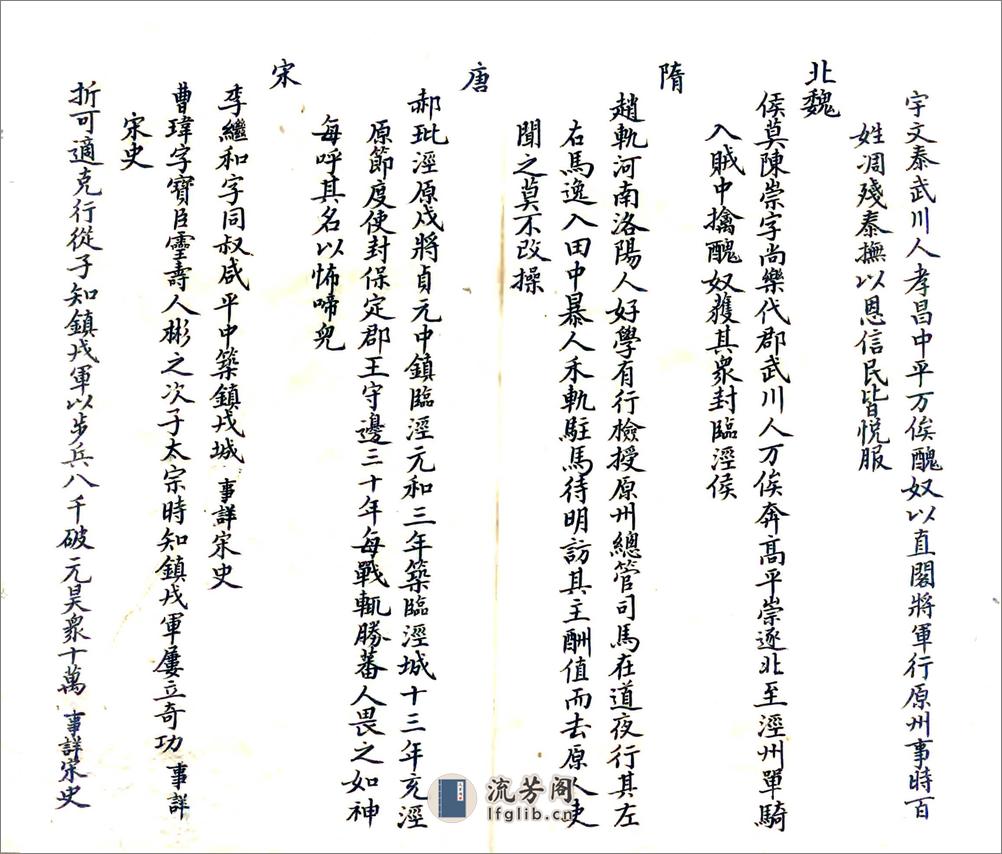 宇文泰武川人孝昌中平万俟醜奴以直閣將軍行原州事時百
姓凋殘泰撫以恩信民皆悅服
北魏
侯莫陳崇字尚樂代郡武川人万俟奔高平崇逐北至涇州單騎
入賊中擒醜奴獲其衆封臨涇侯
隋
趙軌河南洛陽人好學有行檢授原州總管司馬在道夜行其左
右馬逸入田中暴人禾軌駐馬待明訪其主酬值而去原人吏
聞之莫不改操
唐
郝玭涇原戍將貞元中鎮臨涇元和三年築臨涇城十三年充涇
原節度使封保定郡王守邊三十年每戰輒勝蕃人畏之如神
每呼其名以怖啼兒
宋
李繼和字同叔咸平中築鎮戎城 事詳宋史
曹瑋字寶臣靈壽人彬之次子太宗時知鎮戎軍屢立奇功 事詳
宋史
折可適克行從子知鎮戎軍以步兵八千破元昊衆十萬 事詳宋史
流芳阁
lfglib.cn